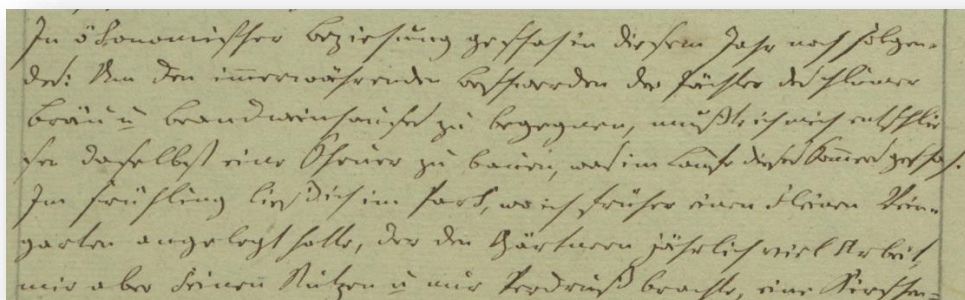 In ökonomischer Beziehung geschah in diesem Jahr noch folgen-
des: Um den immerwährenden Beschwerden der Pächter des
Bräu u Brandweinhauses zu begegnen, mußte ich mich entschlie
ßen daselbst eine Scheuer zu bauen, was im Laufe dieses Sommers geschah.
Im Frühling ließ ich im Park, wo ich früher einen kleinen Wein-
garten angelegt hatte, der den Gärtnern jährlich viel Arbeit,
mir aber keinen Nutzen u nur Verdruß brachte, eine Kirschen-